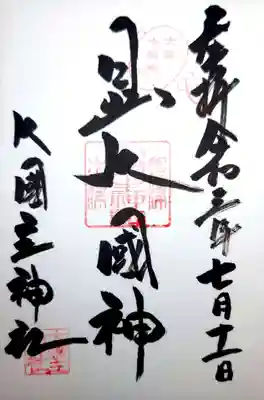 奉拝令和三年七月十一日
显大國神
大國主神社